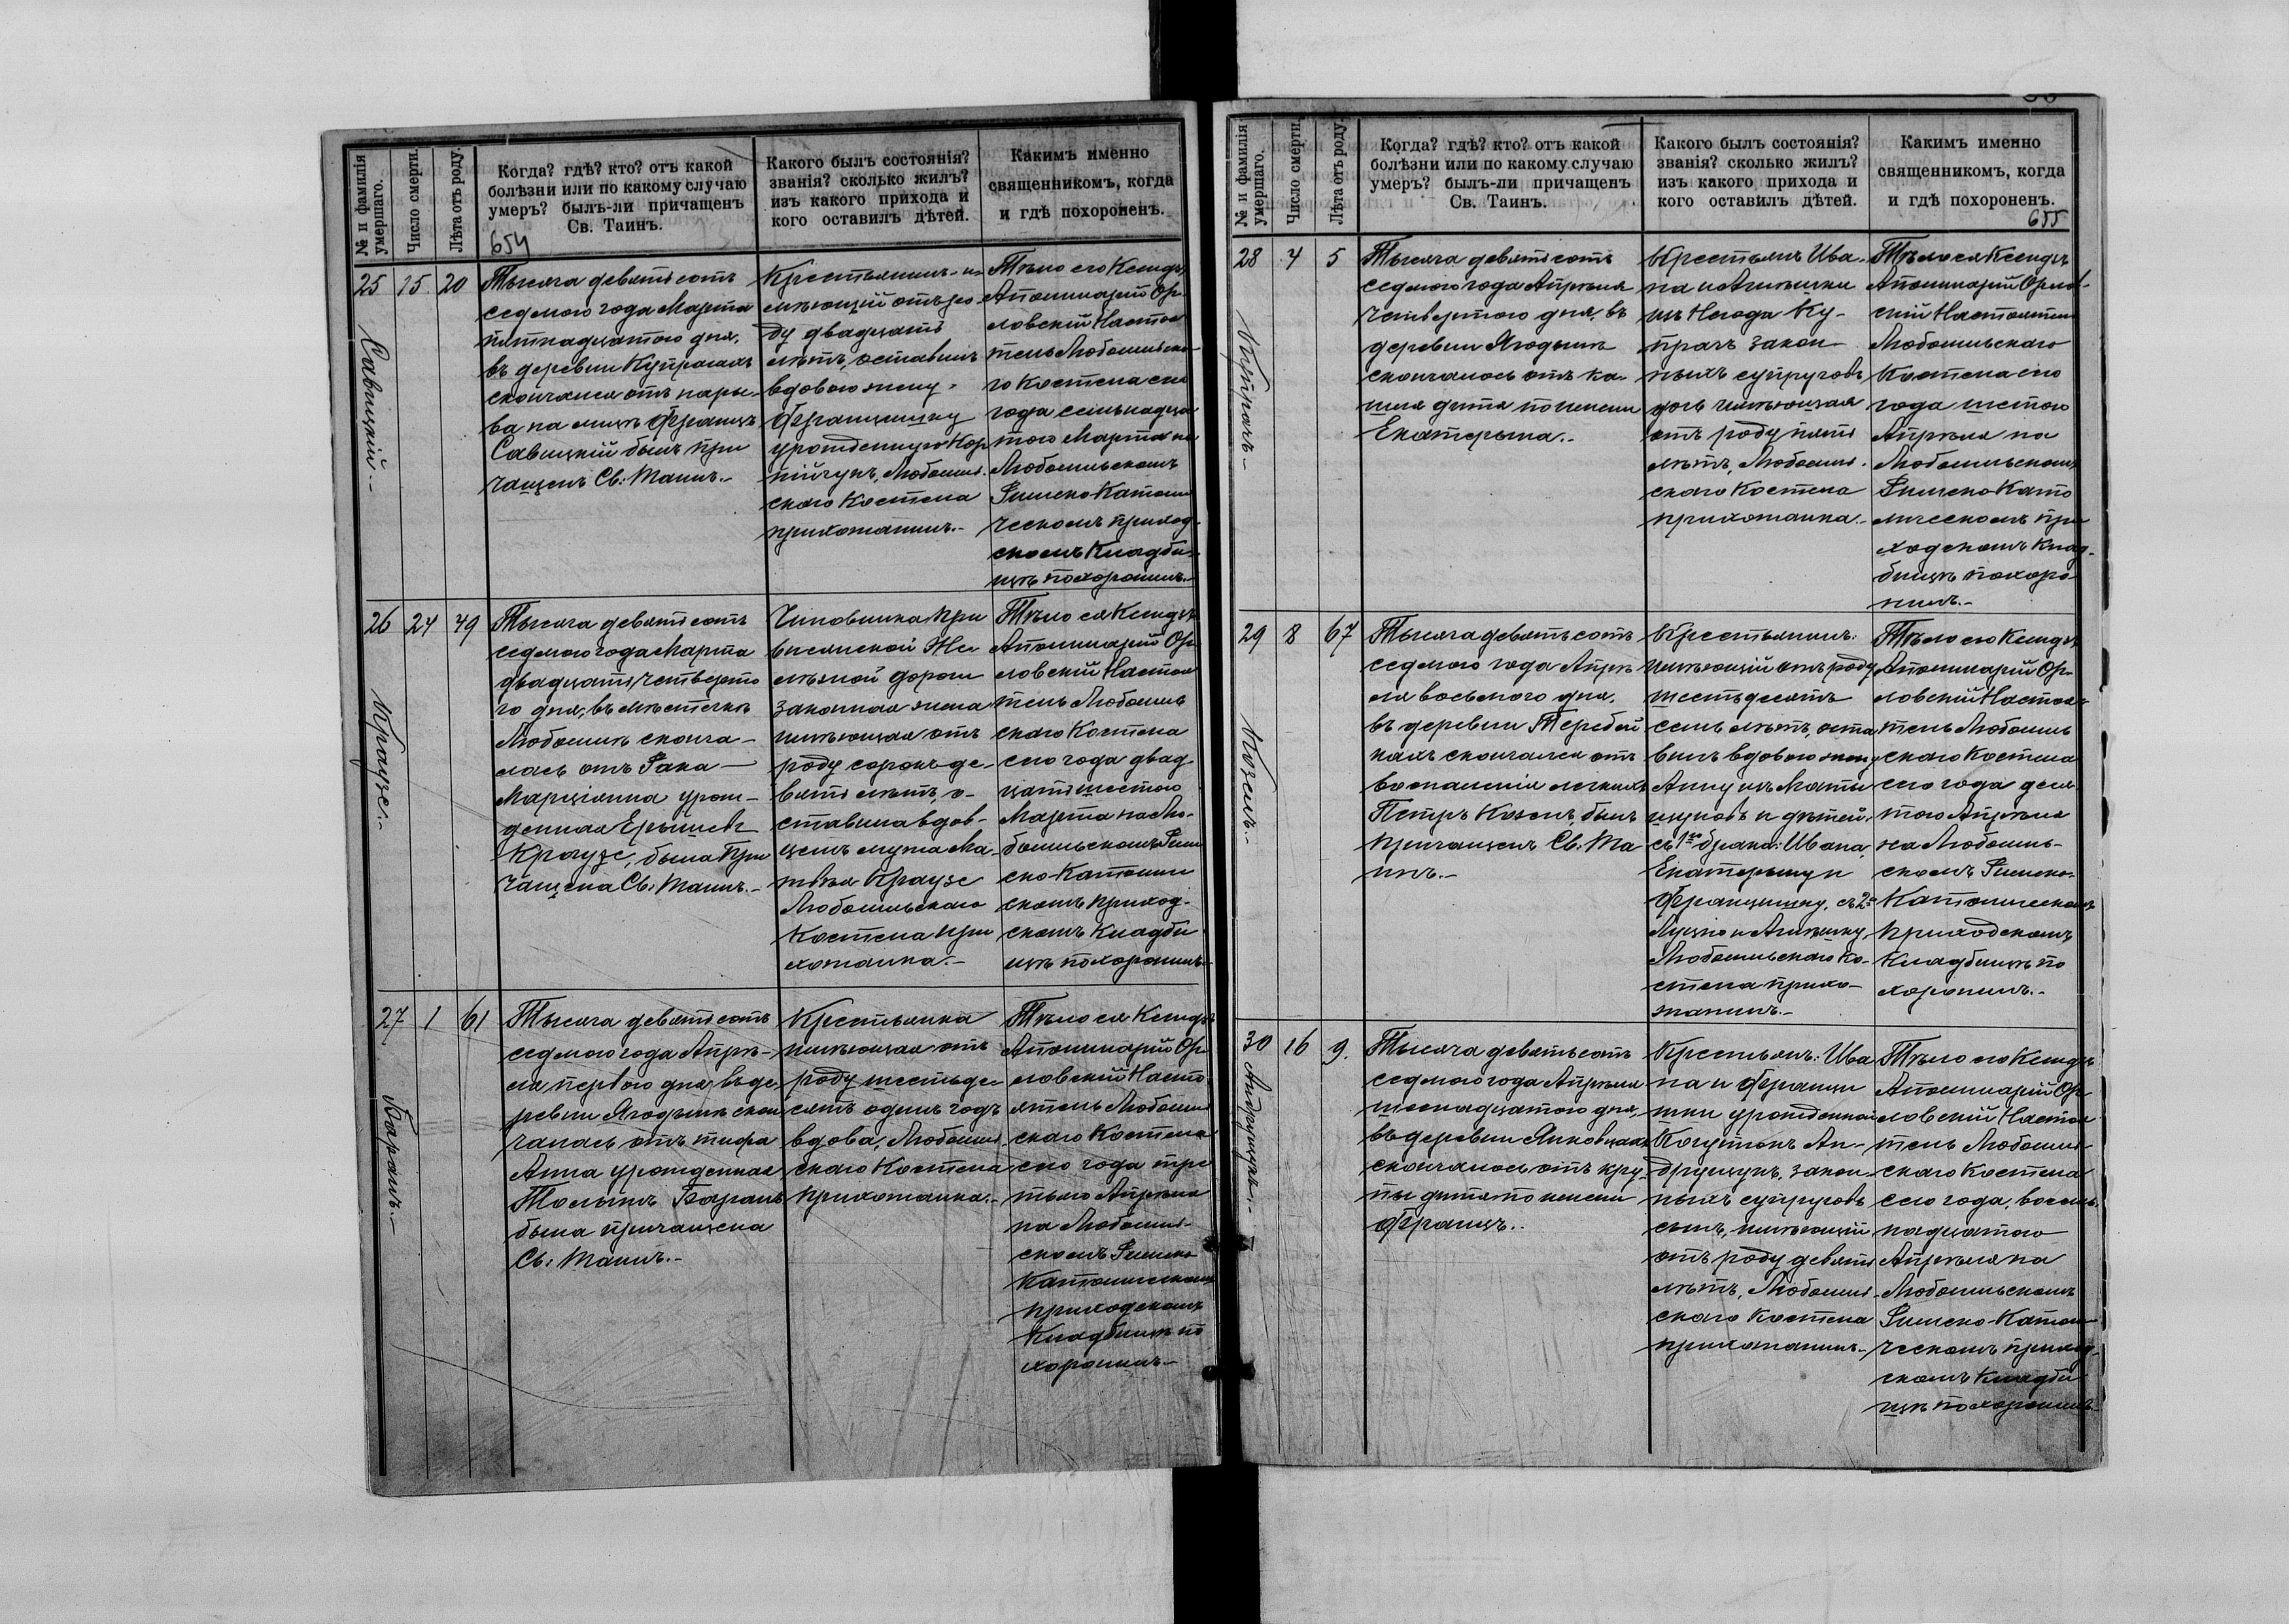 № и фамилія умершаго.
Число смерти.
Лѣта отъ роду.
Когда? гдѣ? кто? отъ какой
болѣзни или по какому случаю
умеръ? былъ-ли причащенъ
Св. Таинъ.
Какого былъ состоянія?
званія? сколько жилъ?
изъ какого прихода и
кого оставилъ дѣтей.
Какимъ именно
священникомъ, когда
и гдѣ похороненъ.
654
25
15
20
Савицкій.-
Тысяча девятьсотъ
седмого года Марта
пятнадцатого дня,
въ деревни Купрахахъ
скончался отъ нары-
ва на лицѣ Францъ
Савицкій былъ при
чащенъ Св: Таинъ.-
Крестьянинъ-и-
мѣющій отъ ро-
ду двадцать
лѣтъ, оставилъ
вдовою жену
Францишку
урожденную
Любашс-
скаго Костела
прихожанинъ.-
Тѣло его Ксендзъ
Аполинарій Ор-
ловскій Настоя
тель Любашьска-
го Костела сего
года семьнадца
того Марта на
Любашьскомъ
Римско Католи
ческомъ приход-
скомъ Кладби-
щѣ похоронилъ.-
26
24
49
Краузе.-
Тысяча девятьсотъ
седмого года Марта
двадцать четверто
го дня, въ мѣстечкѣ
Любашѣ сконча-
лась отъ Рака-
Марціянна урож-
денная
Краузе, была при
чащена Св: Таинъ.-
Чиновника при
вислянской Же
лѣзной дороги
законная жена
имѣющая отъ
роду сорокъ де-
вять лѣтъ, о-
ставила вдов-
цемъ мужа Ма-
тѣя Краузе
Любашьскаго
Костела при
хожанка.-
Тѣло ея Ксендзъ
Аполинарій Ор
ловскій Настоя
тель Любашь
скаго Костела
сего года двад-
цать шестого
Марта на Лю-
башьскомъ Рим
ско-Католи
скомъ приход-
скомъ Кладби
щѣ похоронилъ-
27
1
61
Баранъ.-
Тысяча девятьсотъ
седмого года Апрѣ-
ля первого дня въ де-
ревни Ягодынѣ скон
чалась отъ тифа
Анна урожденная
Баранъ
была причащена
Св: Таинъ.-
Крестьянка
имѣющая отъ
роду шестьде
сятъ одинъ годъ
вдова, Любашс-
скаго Костела
прихожанка.-
Тѣло ея Ксендзъ
Аполинарій Ор
ловскій Насто
ятель Любашс
скаго Костела
сего года тре
тьяго Апрѣля
на Любашс-
скомъ Римско
Католическомъ
приходскомъ
Кладбищѣ по
хоронилъ-
№ и фамилія умершаго.
Число смерти.
Лѣта отъ роду.
Когда? гдѣ? кто? отъ какой
болѣзни или по какому случаю
умеръ? былъ-ли причащенъ
Св. Таинъ.
Какого былъ состоянія?
званія? сколько жилъ?
изъ какого прихода и
кого оставилъ дѣтей.
Какимъ именно
священникомъ, когда
и гдѣ похороненъ.
655
28
4
5
Купрачъ-
Тысяча девятьсотъ
седмого года Апрѣля
четвертого дня, въ
деревни Ягодынѣ
скончалось отъ ка-
шля дитя по имени
Екатерына.-
Крестьянъ Ива-
на и Агнѣшки
изъ Ку-
прачъ закон-
ныхъ супруговъ
дочь имѣющая
отъ роду пять
лѣтъ, Любашс-
скаго Костела
прихожанка.-
Тѣло ея Ксендзъ
Аполинарій Орлов-
скій Настоятель
Любашьскаго
Костела сего
года шестого
Апрѣля на
Любашьскомъ
Римско Като
лическомъ при
ходскомъ Клад-
бищѣ похоро
нилъ.-
29
8
67
Козелъ.-
Тысяча девятьсотъ
седмого года Апрѣ
ля восьмого дня,
въ деревни Теребей
кахъ скончался отъ
воспаленія легкихъ
Петръ Козелъ, былъ
причащенъ Св: Та
инъ.-
Крестьянинъ:
имѣющій отъ роду
шестьдесятъ
семь лѣтъ, оста
вилъ вдовою жену
Анну изъ
и дѣтей:
съ 1го брака: Ивана,
Екатерыну и
Францишку, съ 2го
Луцію и Агнѣшку
Любашьскаго Ко-
стела прихо-
жанинъ.-
Тѣло его Ксендзъ
Аполинарій Ор-
ловскій Настоя-
тель Любашь
скаго Костела
сего года деся
того Апрѣля
на Любашь-
скомъ Римско-
Католическомъ
приходскомъ
Кладбищѣ по
хоронилъ.-
30
16
9.
Андрущукъ.-
Тысяча девятьсотъ
седмого года Апрѣля
шеснадцатого дня,
въ деревни Янковцахъ
скончалось отъ кру-
пы дитя по имени
Францъ..
Крестьянъ: Ива
на и Францы
шки урожденной
Ан-
друщукъ, закон-
ныхъ супруговъ
сынъ, имѣющій
отъ роду девять
лѣтъ, Любашс-
скаго Костела
прихожанинъ-
Тѣло его Ксендзъ
Аполинарій Ор
ловскій Настоя
тель Любашс-
скаго Костела
сего года, восемь
надцатого
Апрѣля на
Любашьскомъ
Римско-Католи
ческомъ приход-
скомъ Кладби
щѣ похоронилъ-